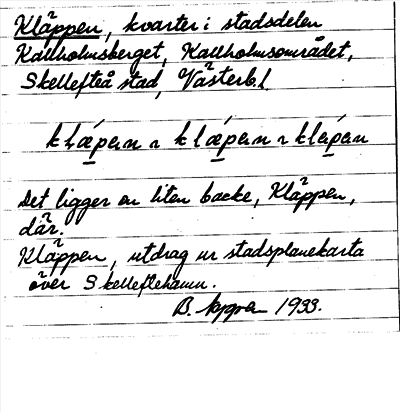 Kläppen, kvarter i stadsdelen
Kallholmsberget, Kallholmsområdet,
Skellefteå stad, Västerb.l.
klǽpen ~ klǽpen ~ klépen
Det ligger en liten backe, Kläppen,
där.
Kläppen, utdrag ur stadsplanekarta
över Skelleftehamn.
B. 1933.